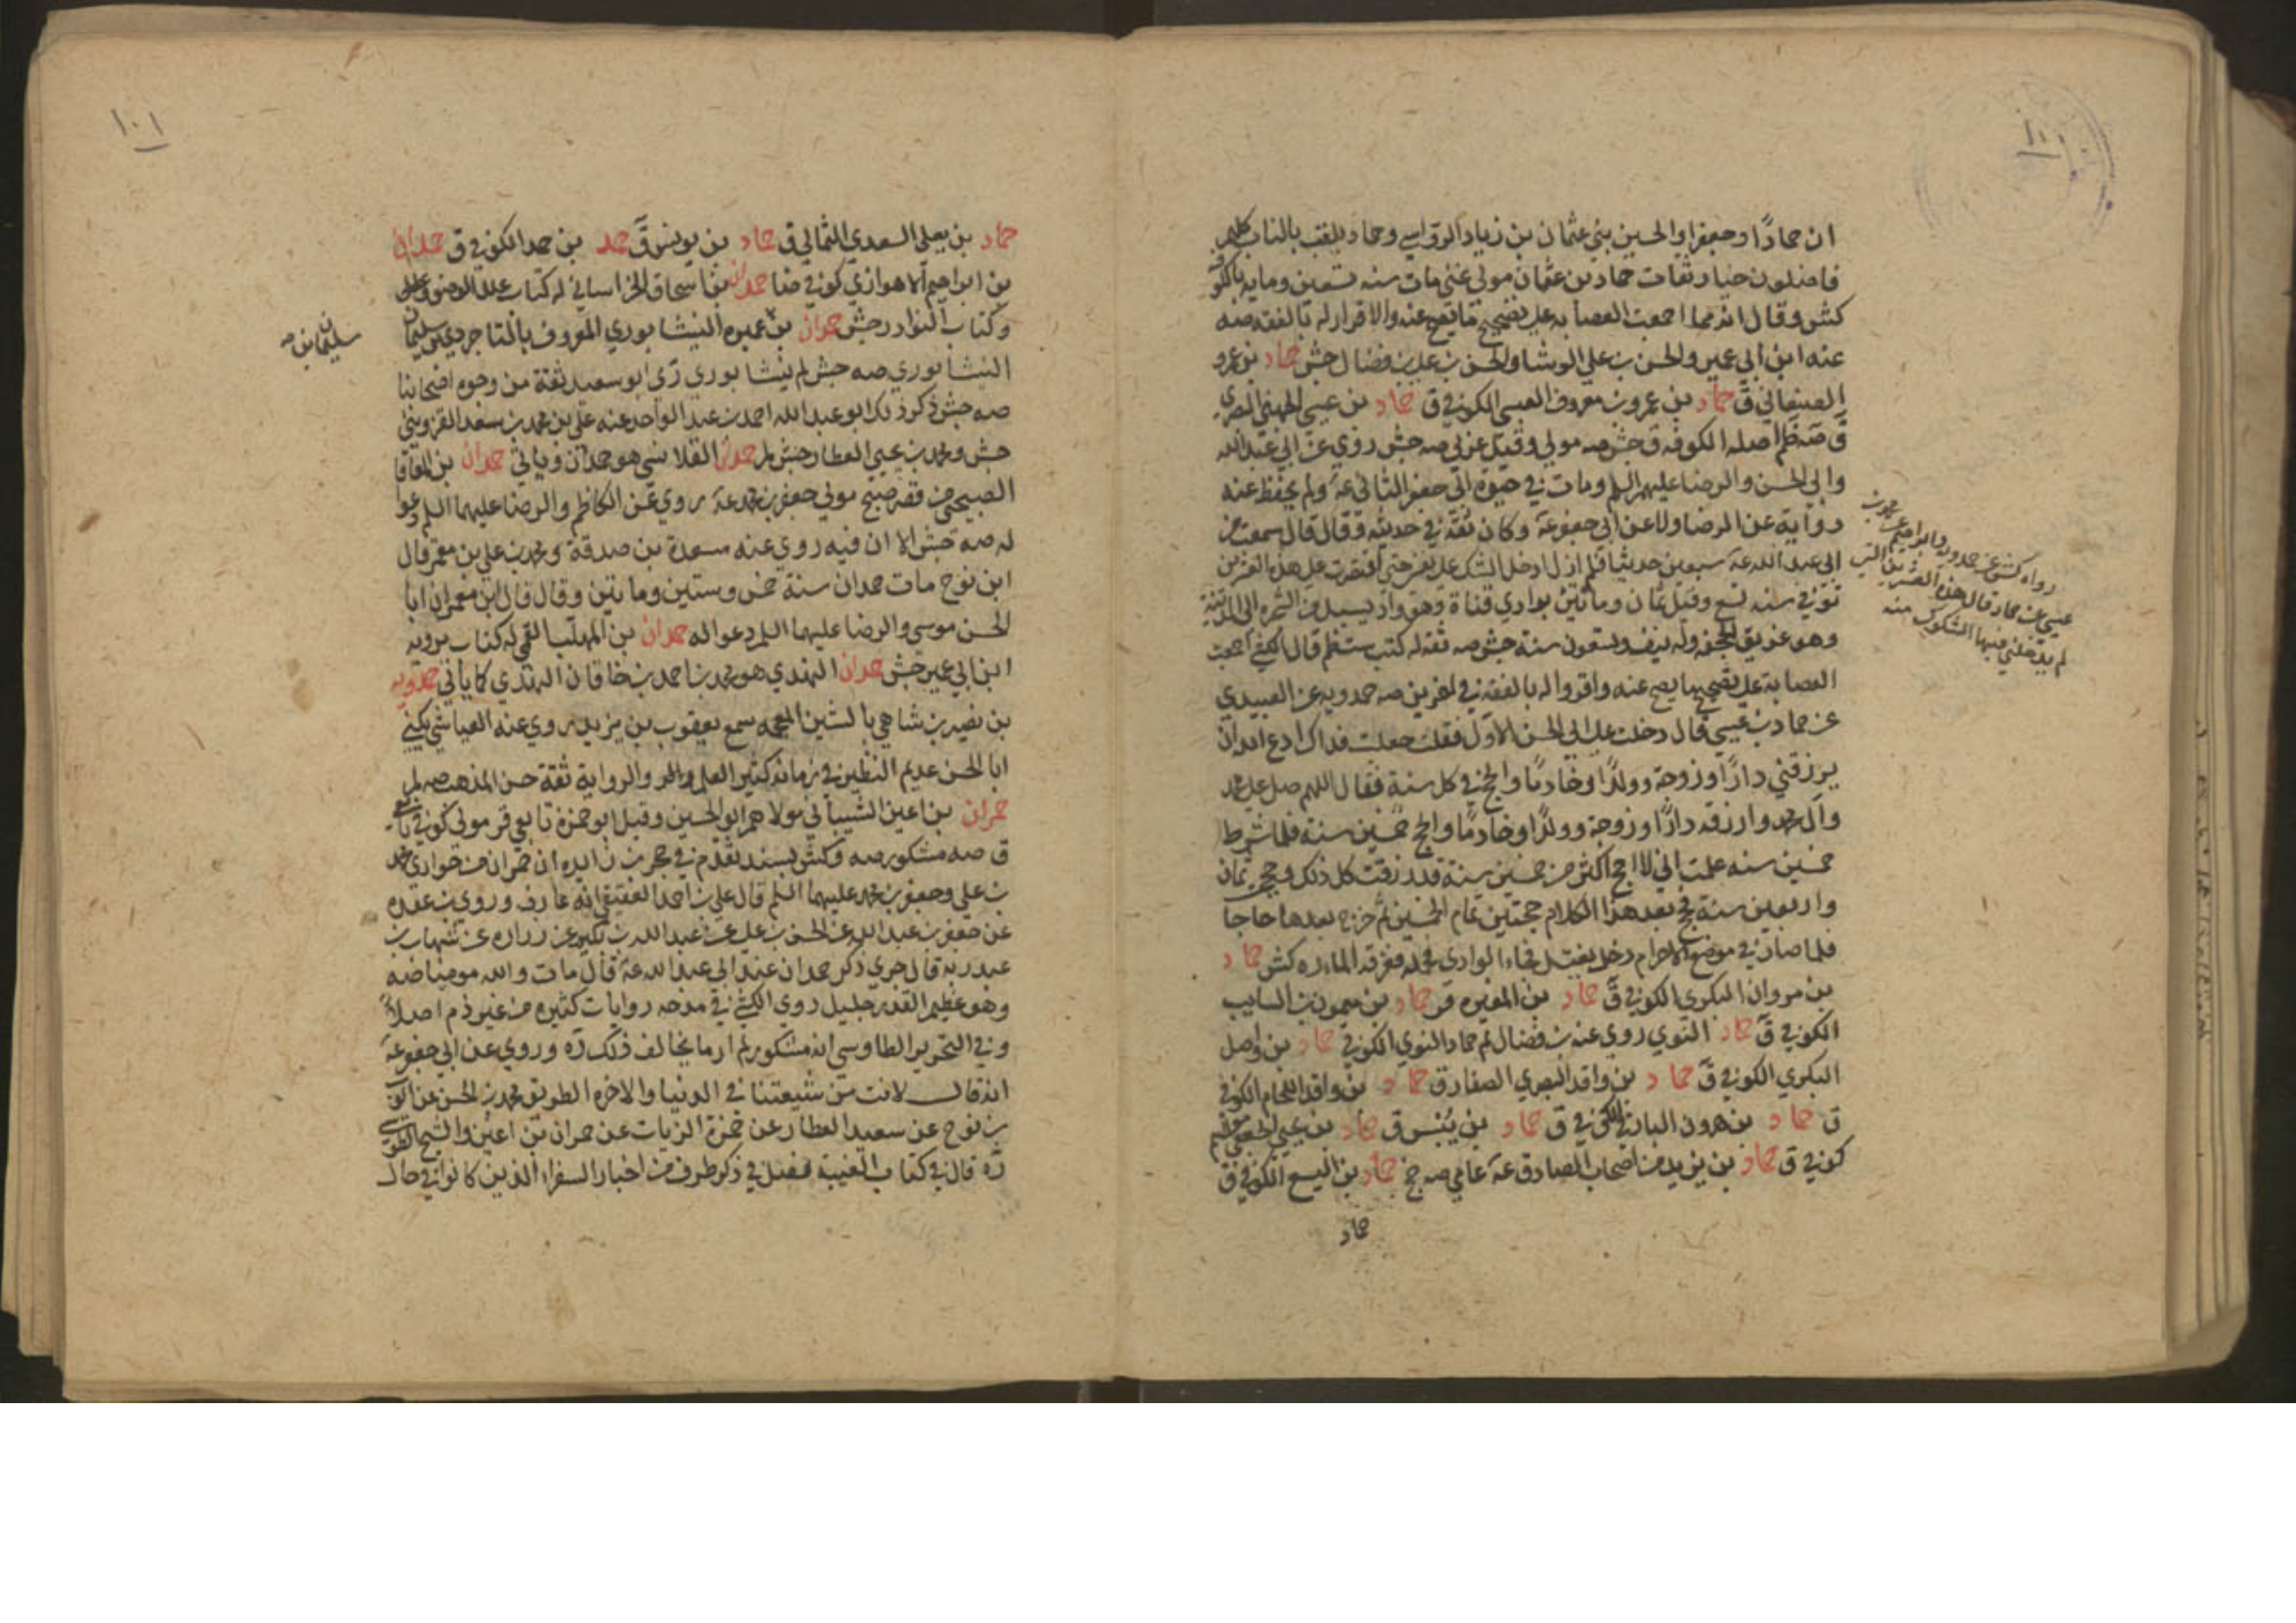 ١٠٠
ان حمادًا وجعفرا والحسين بني عثمان بن زياد الرواسي وحماد يلقب بالناب كلهم
فاضلون خيار ثقات حماد بن عثمان مولى غني مات سنه تسعين ومايه بالكوفه
كش وقال انه ممن اجمعت العصابه على تصحيح ما يصح عنه والاقرار له بالفقه صه
عنه ابن ابي عمير والحسن بن علي الوشا والحسن بن علي بن فضال جش حماد بن عمرو
الصنعاني ق حماد بن عمرو بن معروف العبسي الكوفي ق حماد بن عيسى الجهني البصري
ق صه ظم اصله الكوفه ق جش صه مولى وقيل عربي صه جش روى عن ابي عبد الله
وابي الحسن والرضا عليهم السلم ومات في حيوة ابي جعفر الثاني عه ولم يحفظ عنه
رواية عن الرضا ولا عن ابي جعفر عه وكان ثقة في حديثه وقال قال سمعت من
ابي عبد الله عه سبعين حديثا فلم ازل ادخل الشك على نفسي حتى اقتصرت على هذه العشرين
توفي سنه تسع وقيل ثمان ومأتين بوادي قناة وهو واد يسيل من الشجره الى المدينة
وهو غريق الجحفه وله نيف وتسعون سنة جش صه ثقه له كتب ست ظم قال الكشي اجمعت
العصابة على تصحيح ما يصح عنه واقروا له بالفقه في اخرين صه حمدويه عن العبيدي
عن حماد بن عيسى قال دخلت على ابي الحسن الاول فقلت جعلت فداك ادع الله ان
يرزقني دارًا وزوجة وولدًا وخادمًا والحج في كل سنة فقال اللهم صل على محمد
وآل محمد وارزقه دارًا وزوجة وولدًا وخادمًا والحج خمسين سنة فلما شرط
خمسين سنه علمت اني لا احج اكثر من خمسين سنة قد رزقت كل ذلك وحج ثمان
واربعين سنة فحج بعد هذا الكلام حجتين تمام الخمسين ثم خرج بعدها حاجا
فلما صار في موضع الاحرام دخل يغتسل فجاء الوادي فحمله فغرقه الماء ره كش حماد
بن مروان البكري الكوفي ق حماد بن المغيره قر حماد بن ميمون بن السايب
الكوفي ق حماد النوي روى عنه بن فضال لم حماد النوي الكوفي حماد بن واصل
البكري الكوفي ق حماد بن واقد البصري الصفار ق حماد بن واقد اللحام الكوفي
ق حماد بن هرون البارقي الكوفي ق حماد بن يُنْس ق حماد بن يحيى الجعفي مولاهم
كوفي ق حماد بن يزيد من اصحاب الصادق عه عامي صه جخ حماد بن اليسع الكوفي ق
حماد
رواه كش عن حمدويه وابراهيم عن محمد بن
عيسى عن حماد قال هذه العشرين التي
لم يدخلني فيها الشكوك منه
١٠١
حماد بن يعلى السعدي الثمالي ق حماد بن يونس ق حمد بن حمد الكوفي ق حمدان
بن ابراهيم الاهوازي كوفي ضا حمدان بن اسحاق الخراساني له كتاب علل الوضوء
وكتاب النوادر جش حمدان بن عميره النيشابوري المعروف بالتاجر بن سليمان
النيشابوري صه جش لم نيشابوري دي ابو سعيد ثقة من وجوه اصحابنا
صه جش ذكر ذلك ابو عبد الله احمد بن عبد الواحد عنه علي بن محمد بن سعد القزويني
جش ومحمد بن يحيى العطار جش لم حمدان القلانسي هو حمدان وياتي حمدان بن المعافا
الصبيحي من قصر صبيح مولى جعفر بن محمد عه روى عن الكاظم والرضا عليهما السلم ودعوا
له صه جش الا ان فيه روى عنه مسعدة بن صدقة ومحمد بن علي بن معمر قال
ابن نوح مات حمدان سنة خمس وستين ومأتين وقال قال ابن معمر ان ابا
الحسن موسى والرضا عليهما السلم دعوا له حمدان بن المهلب القمي له كتاب يرويه
ابن ابي عمير جش حمدان النهدي هو محمد بن احمد بن خاقان النهدي كما ياتي حمدويه
بن نصير بن شاهي بالشين المعجمه سمع يعقوب بن يزيد روى عنه العياشي يكنى
ابا الحسن عديم النظير في زمانه كثير العلم والرواية ثقة حسن المذهب صه لم
حمران بن اعين الشيباني مولاهم ابو الحسين وقيل ابو حمزة تابعي قر مولى كوفي تابعي
ق صه مشكور صه وكش بسند تقدم في حجر بن زائده ان حمران من حواري محمد
بن علي وجعفر بن محمد عليهما السلم قال علي بن احمد العقيقي انه عارف وروى بن عقده
عن جعفر بن عبد الله عن الحسن بن علي عن عبد الله بن بكير عن زراره عن شهاب بن
عبد ربه قال جرى ذكر حمران عند ابي عبد الله عه قال مات والله مومنا صه
وهو عظيم القدر جليل روى الكشي في مدحه روايات كثيره من غير ذم اصلاً
وفي التحرير الطاوسي انه مشكور لم ار ما يخالف ذلك ره وروى عن ابي جعفر عه
انه قال لانت من شيعتنا في الدنيا والاخره الطريق محمد بن الحسن عن ايوب
بن نوح عن سعيد العطار عن حمزة الزيات عن حمران بن اعين والشيخ الطوسي
ره قال في كتاب الغيبة فصل في ذكر طرف من اخبار السفراء الذين كانوا في حال
سليمان بن صه